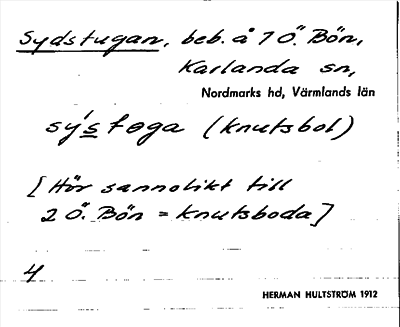 Sydstugan, beb. å 7 Ö. Bön,
Karlanda sn,
Nordmarks hd, Värmlands län
sýstøga (knutsbol)
[Hör sannolikt till
2 Ö. Bön = Knutsboda]
4
HERMAN HULTSTRÖM 1912